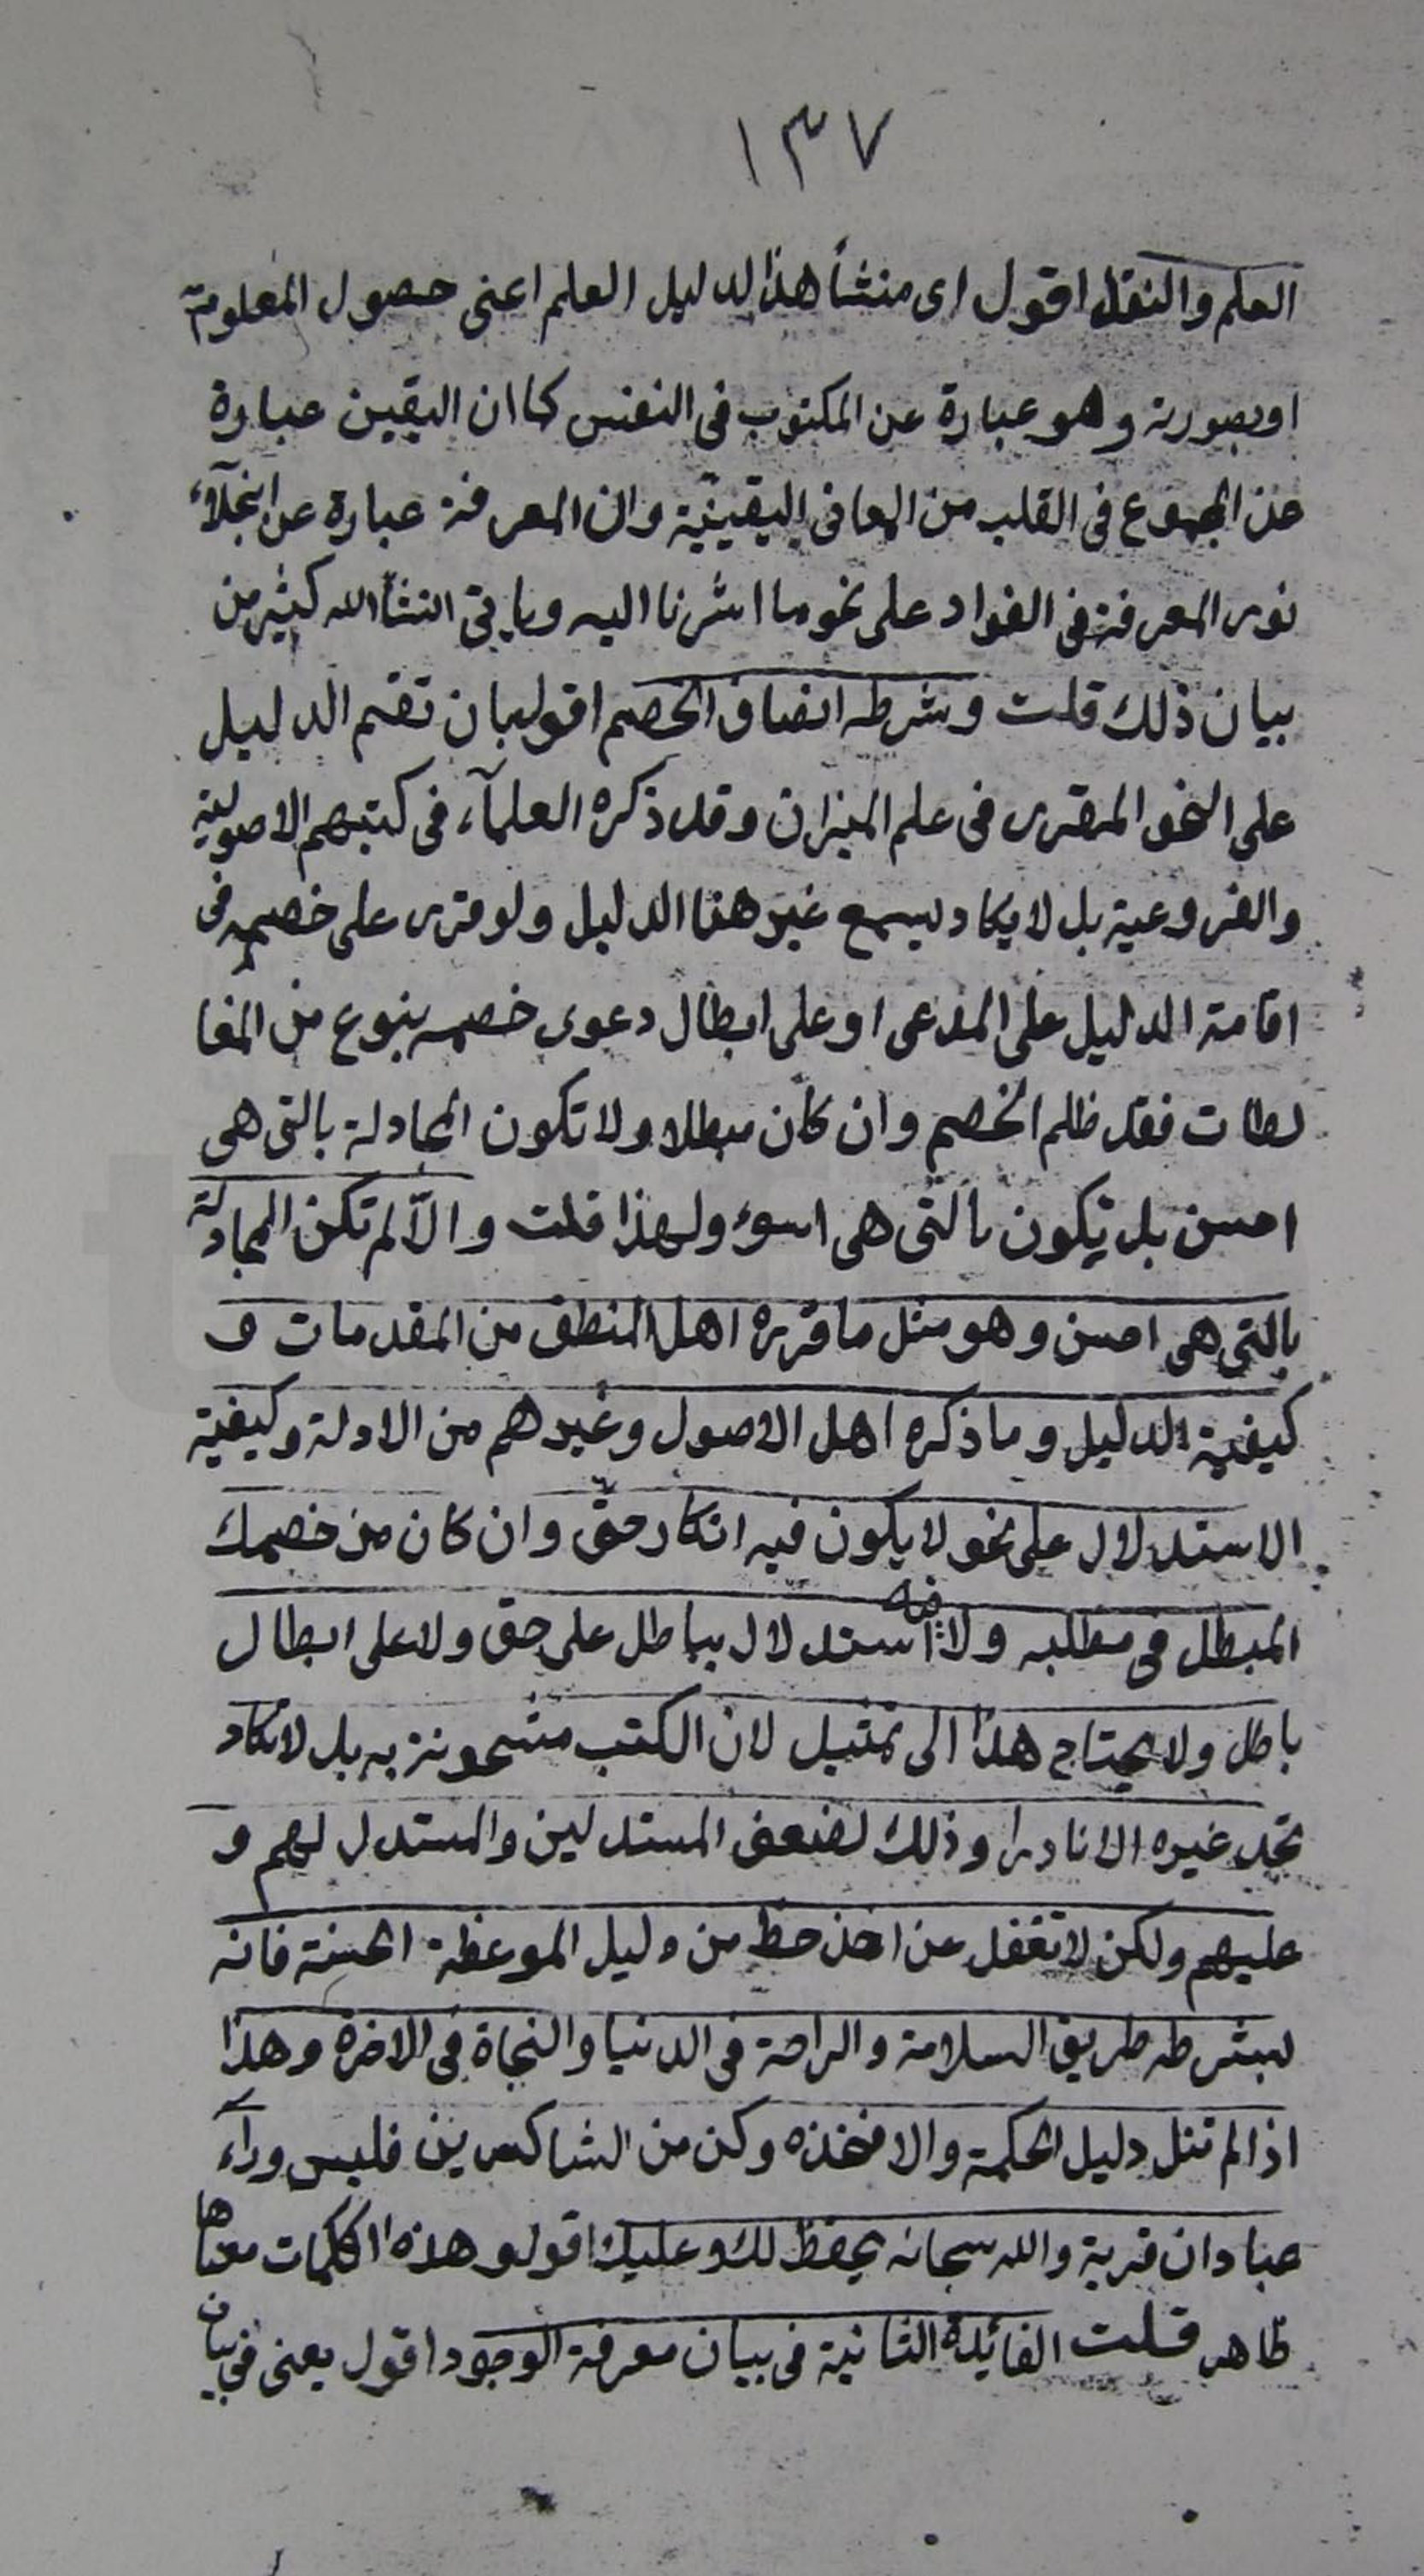 ١٣٧
العلم والنقل اقول اى منشأ هذا لدليل العلم اعنى حصول المعلوم
او بصورته وهو عبارة عن المكتوب فى النفس كما ان اليقين عبارة
عن المجموع فى القلب من المعانى اليقينيّة وان المعرفة عبارة عن انجلآء
نور المعرفة فى الفواد على نحو ما اشرنا اليه وياتى انشأ الله كثير من
بيان ذلك قلت وشرطه انصاف الخصم اقول بان تقيم الدليل
على النحو المقرر فى علم الميزان وقد ذكره العلمآء فى كتبهم الاصولية
والفروعية بل لا يكاد يسمع غير هذا الدليل ولو قرر على خصمه فى
اقامة الدليل على المدعى او على ابطال دعوى خصمه بنوع من المغا
لطات فقد ظلم الخصم وان كان مبطلا ولا تكون المجادلة بالتى هى
احسن بل تكون بالتى هى اسوء ولهذا قلت والّا لم تكن المجادلة
بالتى هى احسن وهو مثل ما قرره اهل المنطق من المقدمات و
كيفية الدليل وما ذكره اهل الاصول وغيرهم من الادلة وكيفية
الاستدلال على نحو لا يكون فيه انكار حقّ وان كان من خصمك
المبطل فى مطلبه ولا فيه استدلال بباطل على حق ولا على ابطال
باطل ولا يحتاج هذا الى تمثيل لان الكتب مشحونة به بل لا تكاد
تجد غيره الا نادرا وذلك لضعف المستدلين والمستدل لهم و
عليهم ولكن لا تغفل عن اخذ حظ من دليل الموعظة الحسنة فانه
بشرطه طريق السلامة والراحة فى الدنيا والنجاة فى الاخرة وهذا
اذا لم تنل دليل الحكمة والا فخذه وكن من الشاكرين فليس ورآء
عبادان قرية والله سبحانه يحفظ لك وعليك اقول وهذه الكلمات معناها
ظاهر قلت الفائدة الثانية فى بيان معرفة الوجود اقول يعنى فى بيان